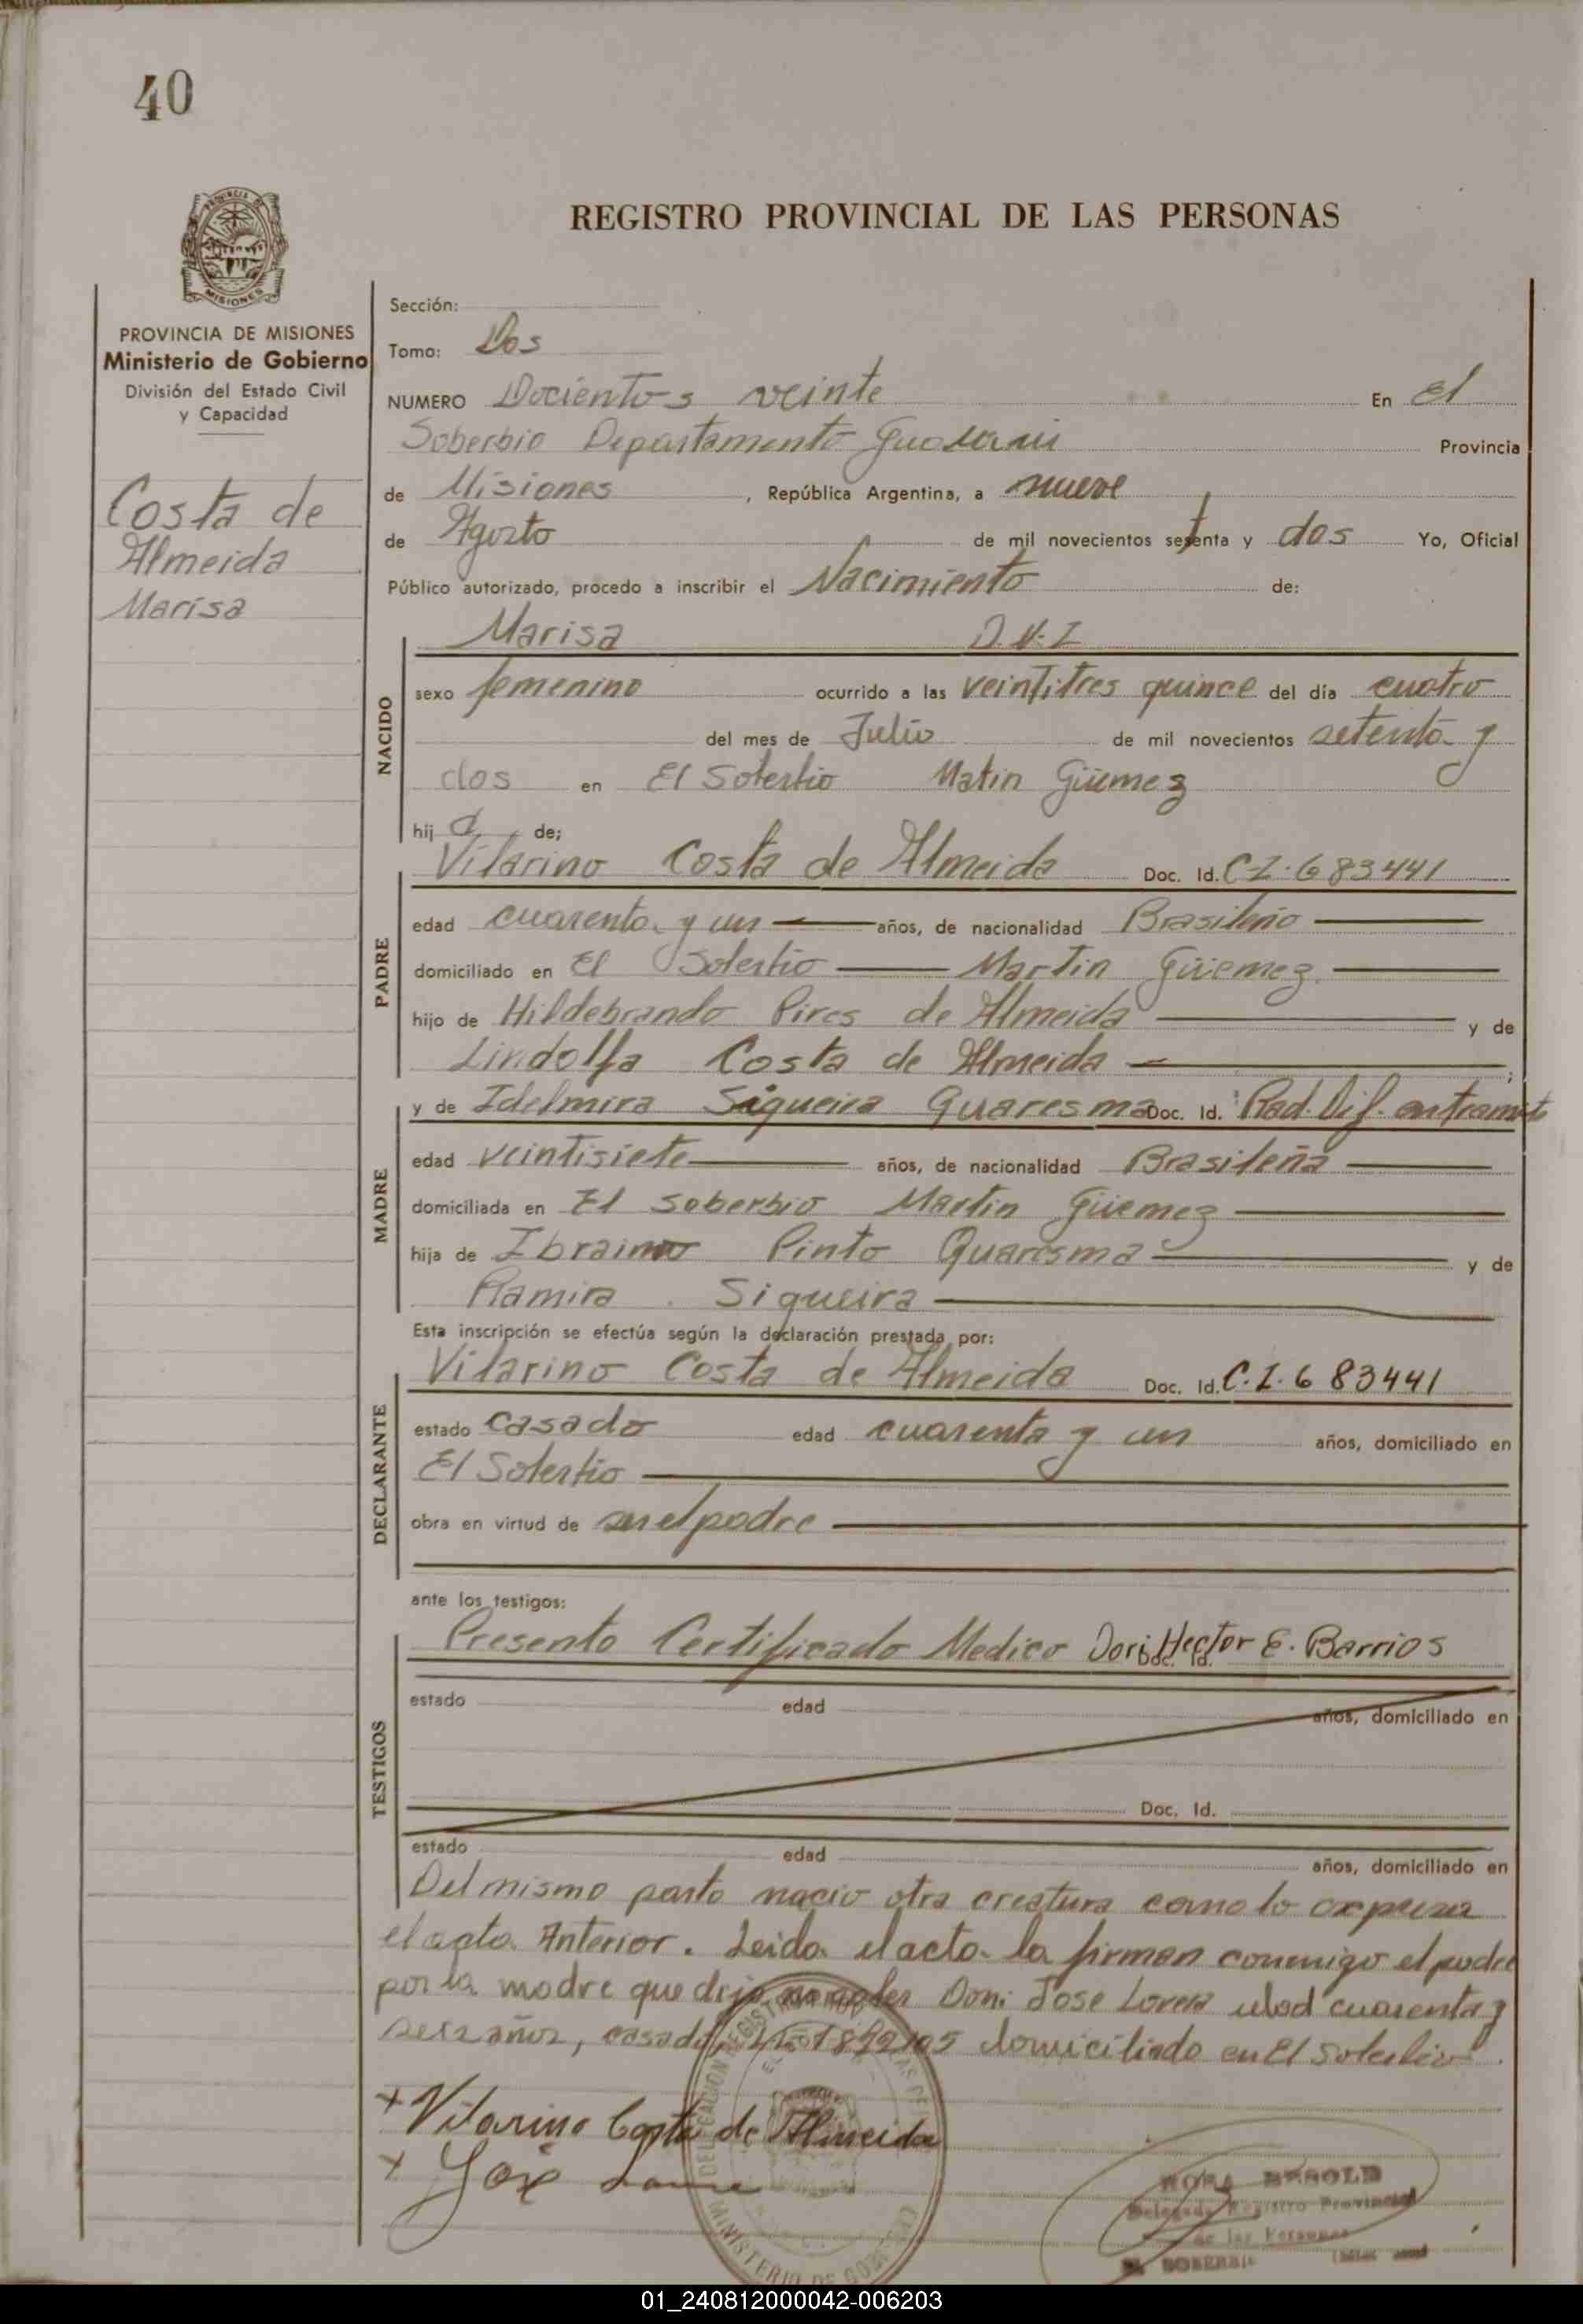 40
REGISTRO PROVINCIAL DE LAS PERSONAS
PROVINCIA DE MISIONES
Ministerio de Gobierno
División del Estado Civil
y Capacidad
Costa de
Almeida
Marisa
Sección:
Tomo: Dos
NUMERO Docientos veinte En El
Soberbio Departamento Guarani Provincia
de Misiones, República Argentina, a nueve
de Agosto de mil novecientos setenta y dos Yo, Oficial
Público autorizado, procedo a inscribir el Nacimiento de:
NACIDO
Marisa D.N.I
sexo femenino ocurrido a las veintitres quince del día cuatro
del mes de Julio de mil novecientos setenta y
dos en El Soberbio Matin Güemez
hija de;
PADRE
Vilarino Costa de Almeida Doc. Id. C I. 683441
edad cuarenta y un años, de nacionalidad Brasileño
domiciliado en El Soberbio Martin Güemez
hijo de Hildebrando Pires de Almeida y de
Lindolfa Costa de Almeida ;
MADRE
y de Idelmira Siqueira Quaresma Doc. Id. Rad. Dif. entramite
edad veintisiete años, de nacionalidad Brasileña
domiciliada en El Soberbio Martin Güemez
hija de Ibraimo Pinto Quaresma y de
Ramira Siqueira
Esta inscripción se efectúa según la declaración prestada por:
DECLARANTE
Vilarino Costa de Almeida Doc. Id. C.I. 683441
estado casado edad cuarenta y un años, domiciliado en
El Soberbio
obra en virtud de ser el padre
ante los testigos:
TESTIGOS
Presento Certificado Medico Hector E. Barrios Doc. Id.
estado edad años, domiciliado en
Doc. Id.
estado edad años, domiciliado en
Del mismo parto nacio otra creatura como lo expresa
el acta Anterior. Leida el acta la firman conmigo el padre
por la madre que dijo Don: Jose edad cuarenta y
seis años, casado, domiciliado en El Soberbio.
x Vilarino Costa de Almeida
x Jose
Delegada Registro Provincial
de las Personas
EL SOBERBIO
01_240812000042-006203